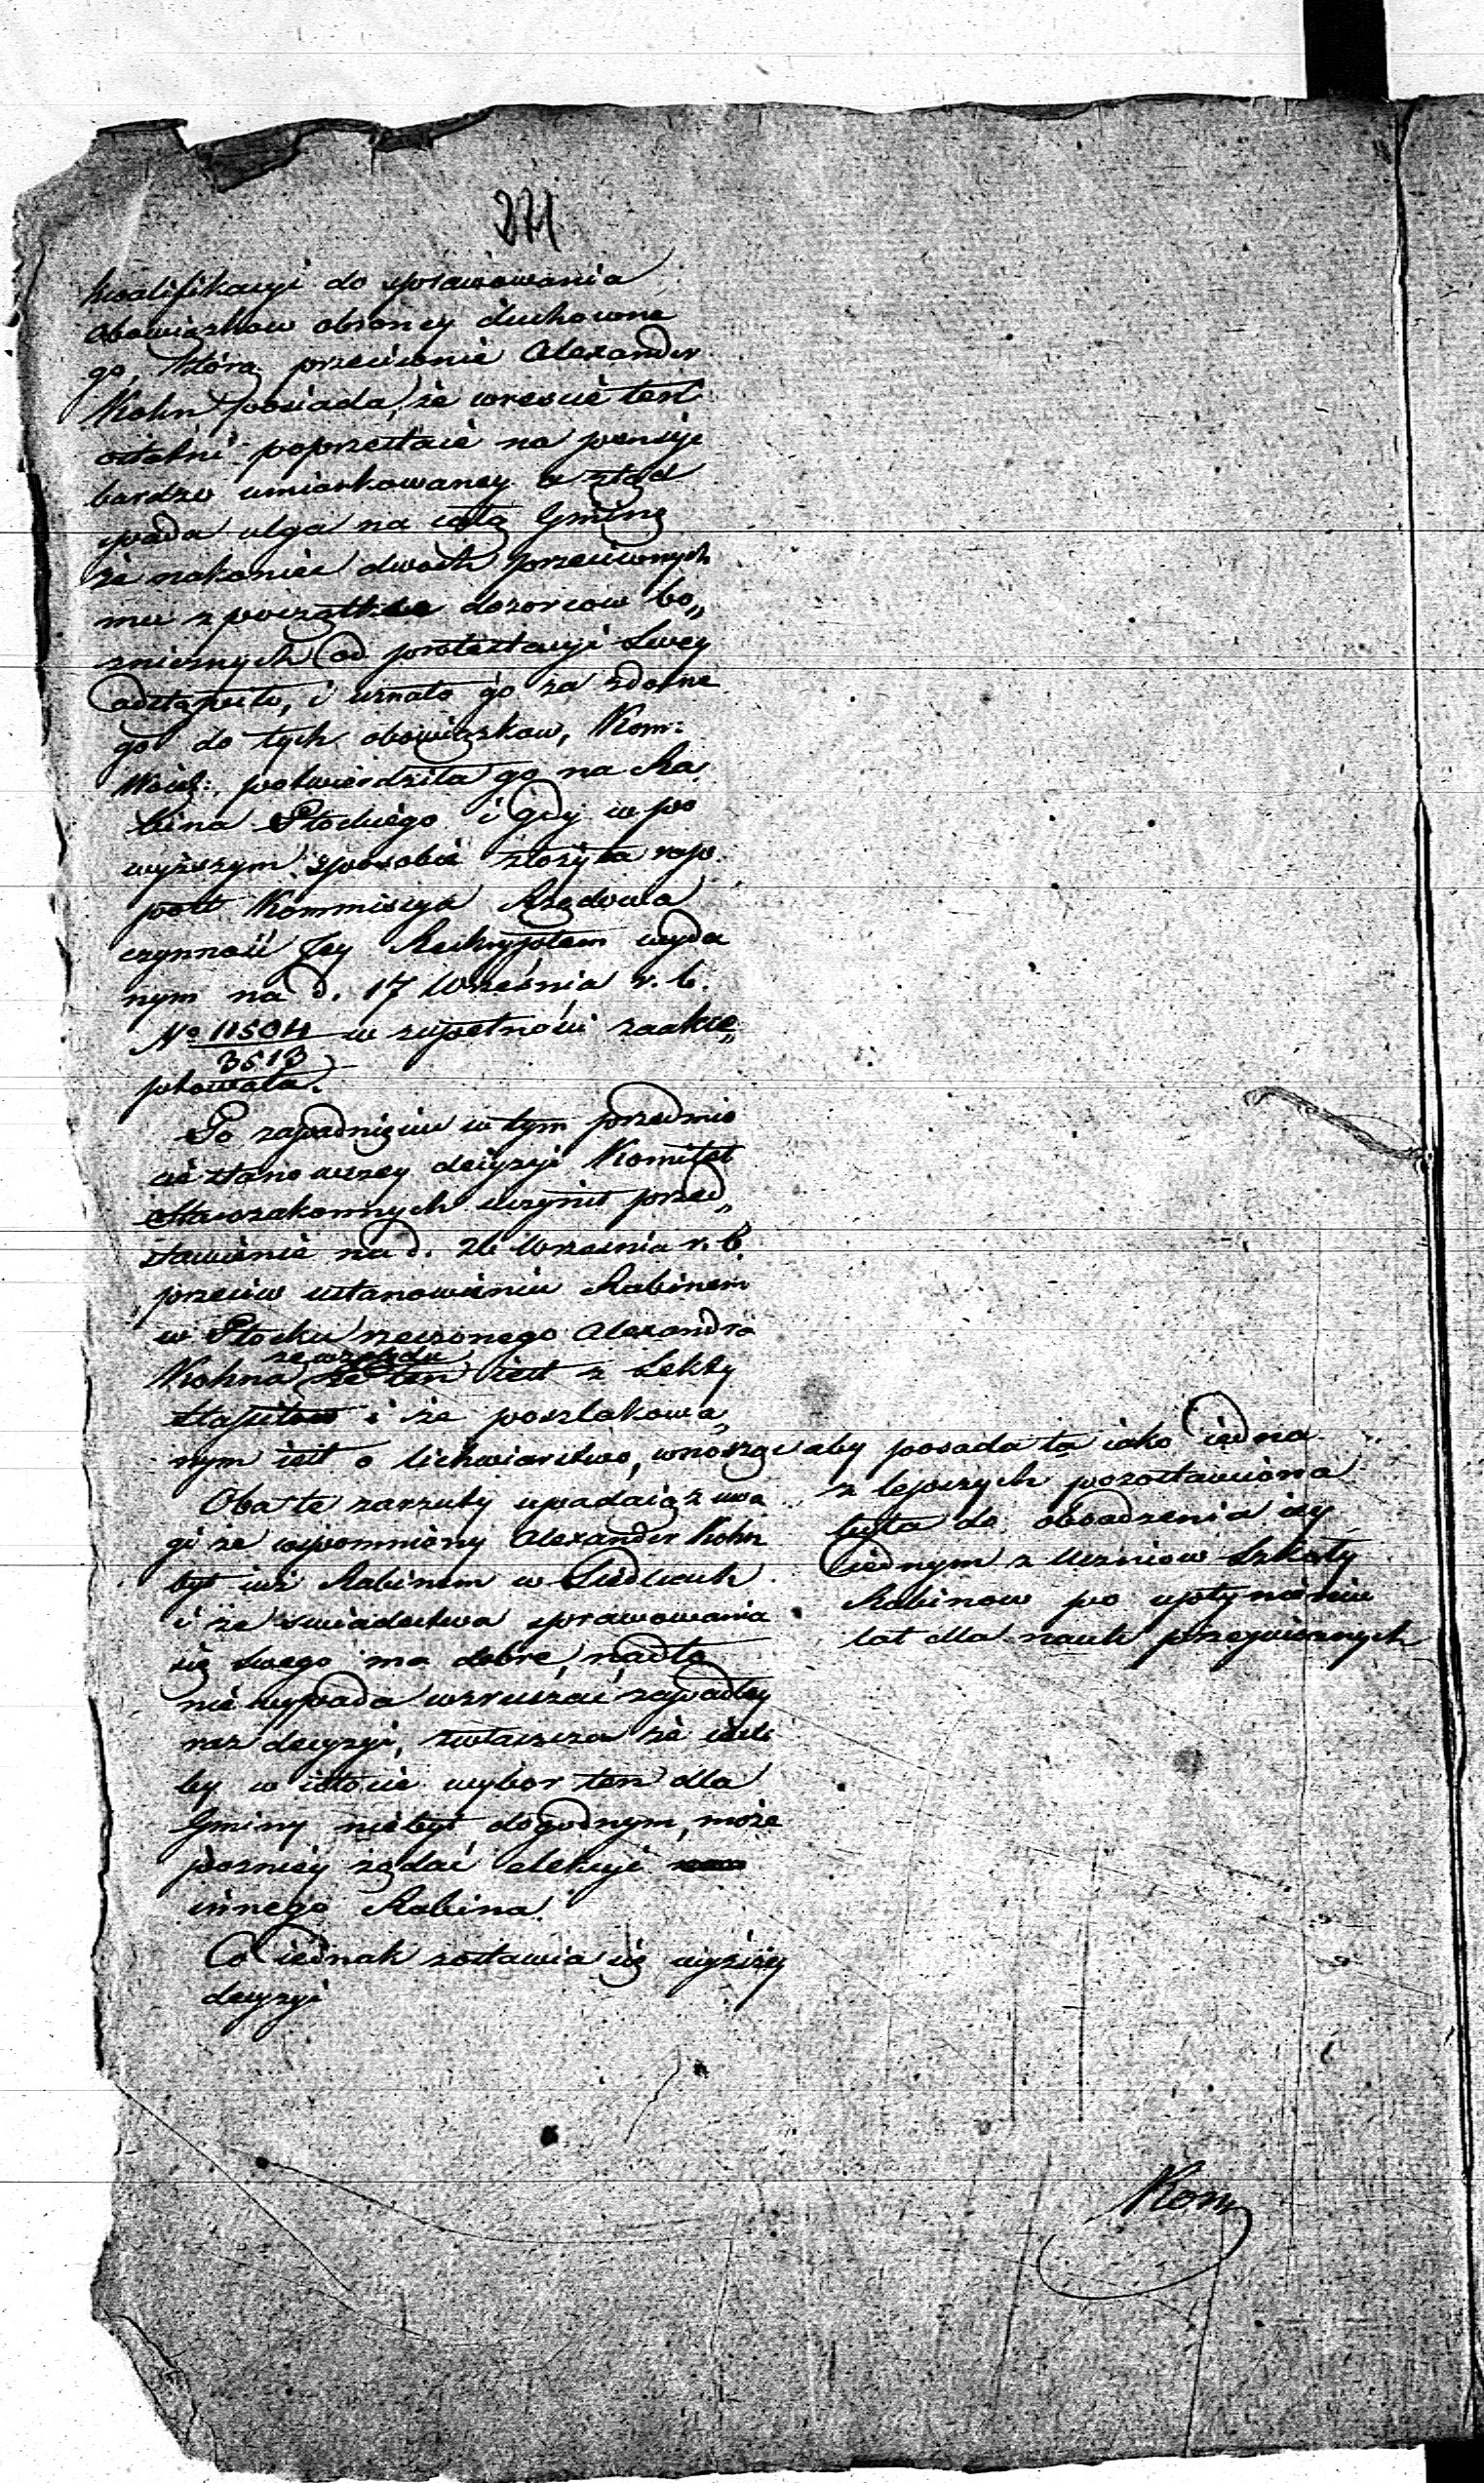 271
kwalifikacyi do sprawowania
obowiązkow obroncy duchowne
go, którą przeciwnie Alexander
Kohn posiada, że wreście ten
ostatni poprzestaie na pensyi
bardzo umiarkowaney a ztąd
spada ulga na całą Gminę
że nakoniec dwóch przeciwnych
mu z początku dozorcow bo„
żnicznych od protestacyi swey
odstąpiło, i uznało go za zdolne
go do tych obowiązkow, Kom:
Woiew: potwierdziła go na Ra
bina Płockiego i gdy w po
wyższym sposobie złożyła rap
port Kommissya Rządowa
czynność Jey Reskryptem wyda
nym na d. 17 Września r. b.
No 11504/3513 w zupełności zaakce„
ptowała.
Po zapadnięciu w tym przedmio
cie stanowczey decyzyi Komitet
Starozakonnych uczynił przed„
stawienie na d. 26 Września r. b.
przeciw ustanowieniu Rabinem
w Płocku rzeczonego Alexandra
ze względu
Kohna że ten iest z Sekty
i że poszlakowa„
nym iest o lichwiarstwo, wnosząc aby posada ta iako iedna
z lepszych pozostawiona
była do obsadzenia iey
iednym z Uczniow Szkoły
Rabinow po upłynieniu
lat dla nauk przepisanych
Oba te zarzuty upadaią z uwa
gi że wspomniony Alexander Kohn
był iuż Rabinem w Siedlcach
i że świadectwa sprawowania
się swego ma dobre, nadto
nie wypada wzruszać zapadłey
raz decyzyi, zwłaszcza że ieśli
by w istocie wybor ten dla
Gminy niebył dogodnym, może
pozniey żądać elekcyi
innego Rabina.
Co iednak zostawia się wyższey
decyzyi
Kom